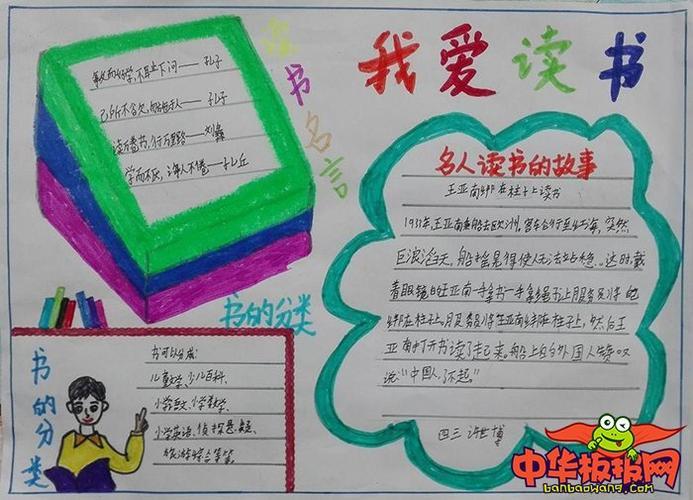 我爱读书
读书名言
敏而好学,不耻下问——孔子
己所不欲,勿施于人——孔子
读万卷书,行万里路——刘彝
学而不厌,诲人不倦——孔丘
名人读书的故事
王亚南绑在柱子上读书
1933年,王亚南乘船去欧洲。客轮行至红海,突然
巨浪滔天,船摇晃得使人无法站稳。这时,戴
着眼镜的王亚南一手拿书一手拿绳
绑在柱子上,
亚南打开书读了起来。船上的外国人赞叹
说:“中国人,了不起。”
四三 许世博
书的分类
书的分类
书可以分成:
儿童文学、少儿百科、
小学语文、小学数学、
小学英语、侦探悬疑、
旅游综合等等。
中华板报网
banbaowang.com